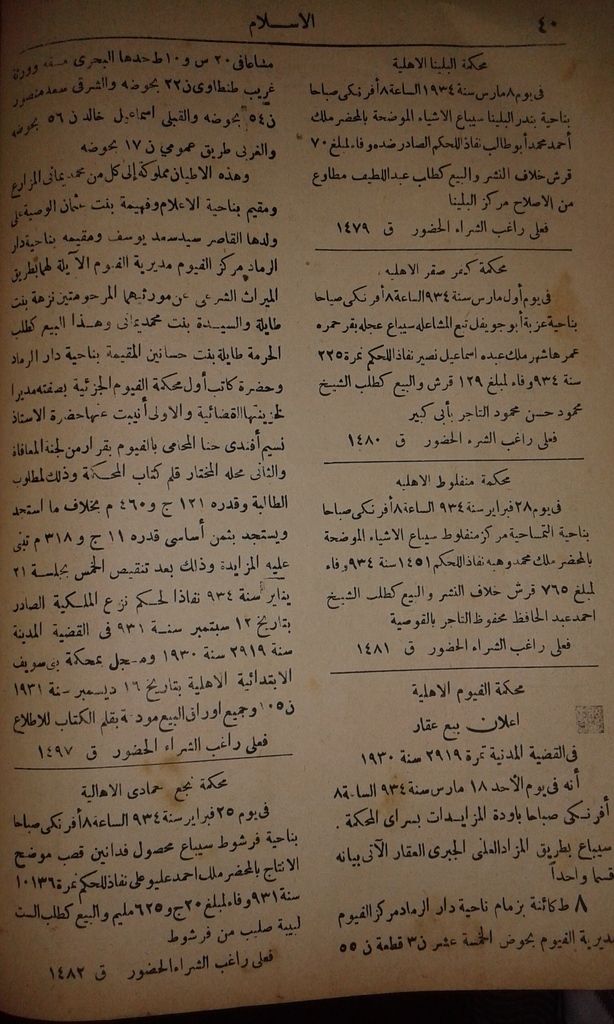 ٤٠
الاسلام
محكمة البلينا الاهلية
فى يوم ٨ مارس سنة ١٩٣٤ الساعة ٨ أفرنكى صباحا
بناحية بندر البلينا سيباع الاشياء الموضحة بالمحضر ملك
أحمد محمد أبو طالب نفاذا للحكم الصادر ضده وفاء لمبلغ ٧٠
قرش خلاف النشر والبيع كطلب عبد اللطيف مطاوع
من الاصلاح مركز البلينا
فعلى راغب الشراء الحضور ق ١٤٧٩
محكمة كفر صقر الاهليه
فى يوم أول مارس سنة ٩٣٤ الساعة ٨ أفرنكى صباحا
بناحية عزبة أبو جويفل تبع المشاعله سيباع عجله بقر حمره
عمرها شهر ملك عبده اسماعيل نصير نفاذا للحكم نمرة ٢٢٥
سنة ٩٣٤ وفاء لمبلغ ١٢٩ قرش والبيع كطلب الشيخ
محمود حسن محمود التاجر بأبى كبير
فعلى راغب الشراء الحضور ق ١٤٨٠
محكمة منفلوط الاهليه
فى يوم ٢٨ فبراير سنة ٩٣٤ الساعة ٨ أفرنكى صباحا
بناحية التمساحية مركز منفلوط سيباع الاشياء الموضحة
بالمحضر ملك محمد وهبه نفاذا للحكم ١٤٥١ سنة ٩٣٤ وفاء
لمبلغ ٧٦٥ قرش خلاف النشر والبيع كطلب الشيخ
احمد عبد الحافظ محفوظ التاجر بالقوصية
فعلى راغب الشراء الحضور ق ١٤٨١
محكمة الفيوم الاهلية
اعلان بيع عقار
فى القضية المدنية نمرة ٢٩١٩ سنة ١٩٣٠
أنه فى يوم الأحد ١٨ مارس سنة ٩٣٤ الساعة ٨
أفرنكى صباحا باودة المزايدات بسراى المحكمة .
سيباع بطريق المزاد العلنى الجبرى العقار الآتى بيانه
قسما واحداً
٨ ط كائنة بزمام ناحية دار الرماد مركز الفيوم
مديرية الفيوم بحوض الخمسة عشر ن ٣ قطعة ن ٥٥
مشاعا فى ٢٠ س و ١٠ ط حدها البحرى وورثة
غريب طنطاوى ن ٢٢ بحوضه والشرقى سعد منصور
ن ٥٤ بحوضه والقبلى اسماعيل خالد ن ٥٦ بحوضه
والغربى طريق عمومى ن ١٧ بحوضه
وهذه الاطيان مملوكة إلى كل من محمد يمانى المزارع
ومقيم بناحية الاعلام وفهيمة بنت عثمان الوصية على
ولدها القاصر سيد سعد يوسف ومقيمه بناحية دار
الرماد مركز الفيوم مديرية الفيوم الآيلة لهما بطريق
الميراث الشرعى عن مورثيهما المرحومتين نزهة بنت
طايلة والسيدة بنت محمد يمانى وهذا البيع كطلب
الحرمة طايلة بنت حسانين المقيمة بناحية دار الرماد
وحضرة كاتب أول محكمة الفيوم الجزئية بصفته مديرا
لخزينتها القضائية والاولى أنيبت عنها حضرة الاستاذ
نسيم أفندى حنا المحامى بالفيوم بقرار من لجنة المعافاة
والثانى محله المختار قلم كتاب المحكمة وذلك لمطلوب
الطالبة وقدره ١٢١ ج و ٤٦٠ م بخلاف ما استجد
ويستجد بثمن أساسى قدره ١١ ج و ٣١٨ م تبنى
عليه المزايدة وذلك بعد تنقيص الخمس بجلسة ٢١
يناير سنة ٩٣٤ نفاذا لحكم نزع الملكية الصادر
بتاريخ ١٢ سبتمبر سنة ٩٣١ فى القضية المدنية
سنة ٢٩١٩ سنة ١٩٣٠ ومسجل بمحكمة بنى سويف
الابتدائية الاهلية بتاريخ ١٦ ديسمبر سنة ١٩٣١
ن ١٠٥ وجميع اوراق البيع مودعة بقلم الكتاب للاطلاع
فعلى راغب الشراء الحضور ق ١٤٩٧
محكمة نجع حمادى الاهالية
فى يوم ٢٥ فبراير سنة ٩٣٤ الساعة ٨ أفرنكى صباحا
بناحية فرشوط سيباع محصول فدانين قصب موضح
الانتاج بالمحضر ملك احمد عليو على نفاذا للحكم نمرة ١٠١٣٦
سنة ٩٣١ وفاء لمبلغ ٢٠ ج و ٦٢٥ مليم والبيع كطلب الست
لبيبة صليب من فرشوط
فعلى راغب الشراء الحضور ق ١٤٨٢